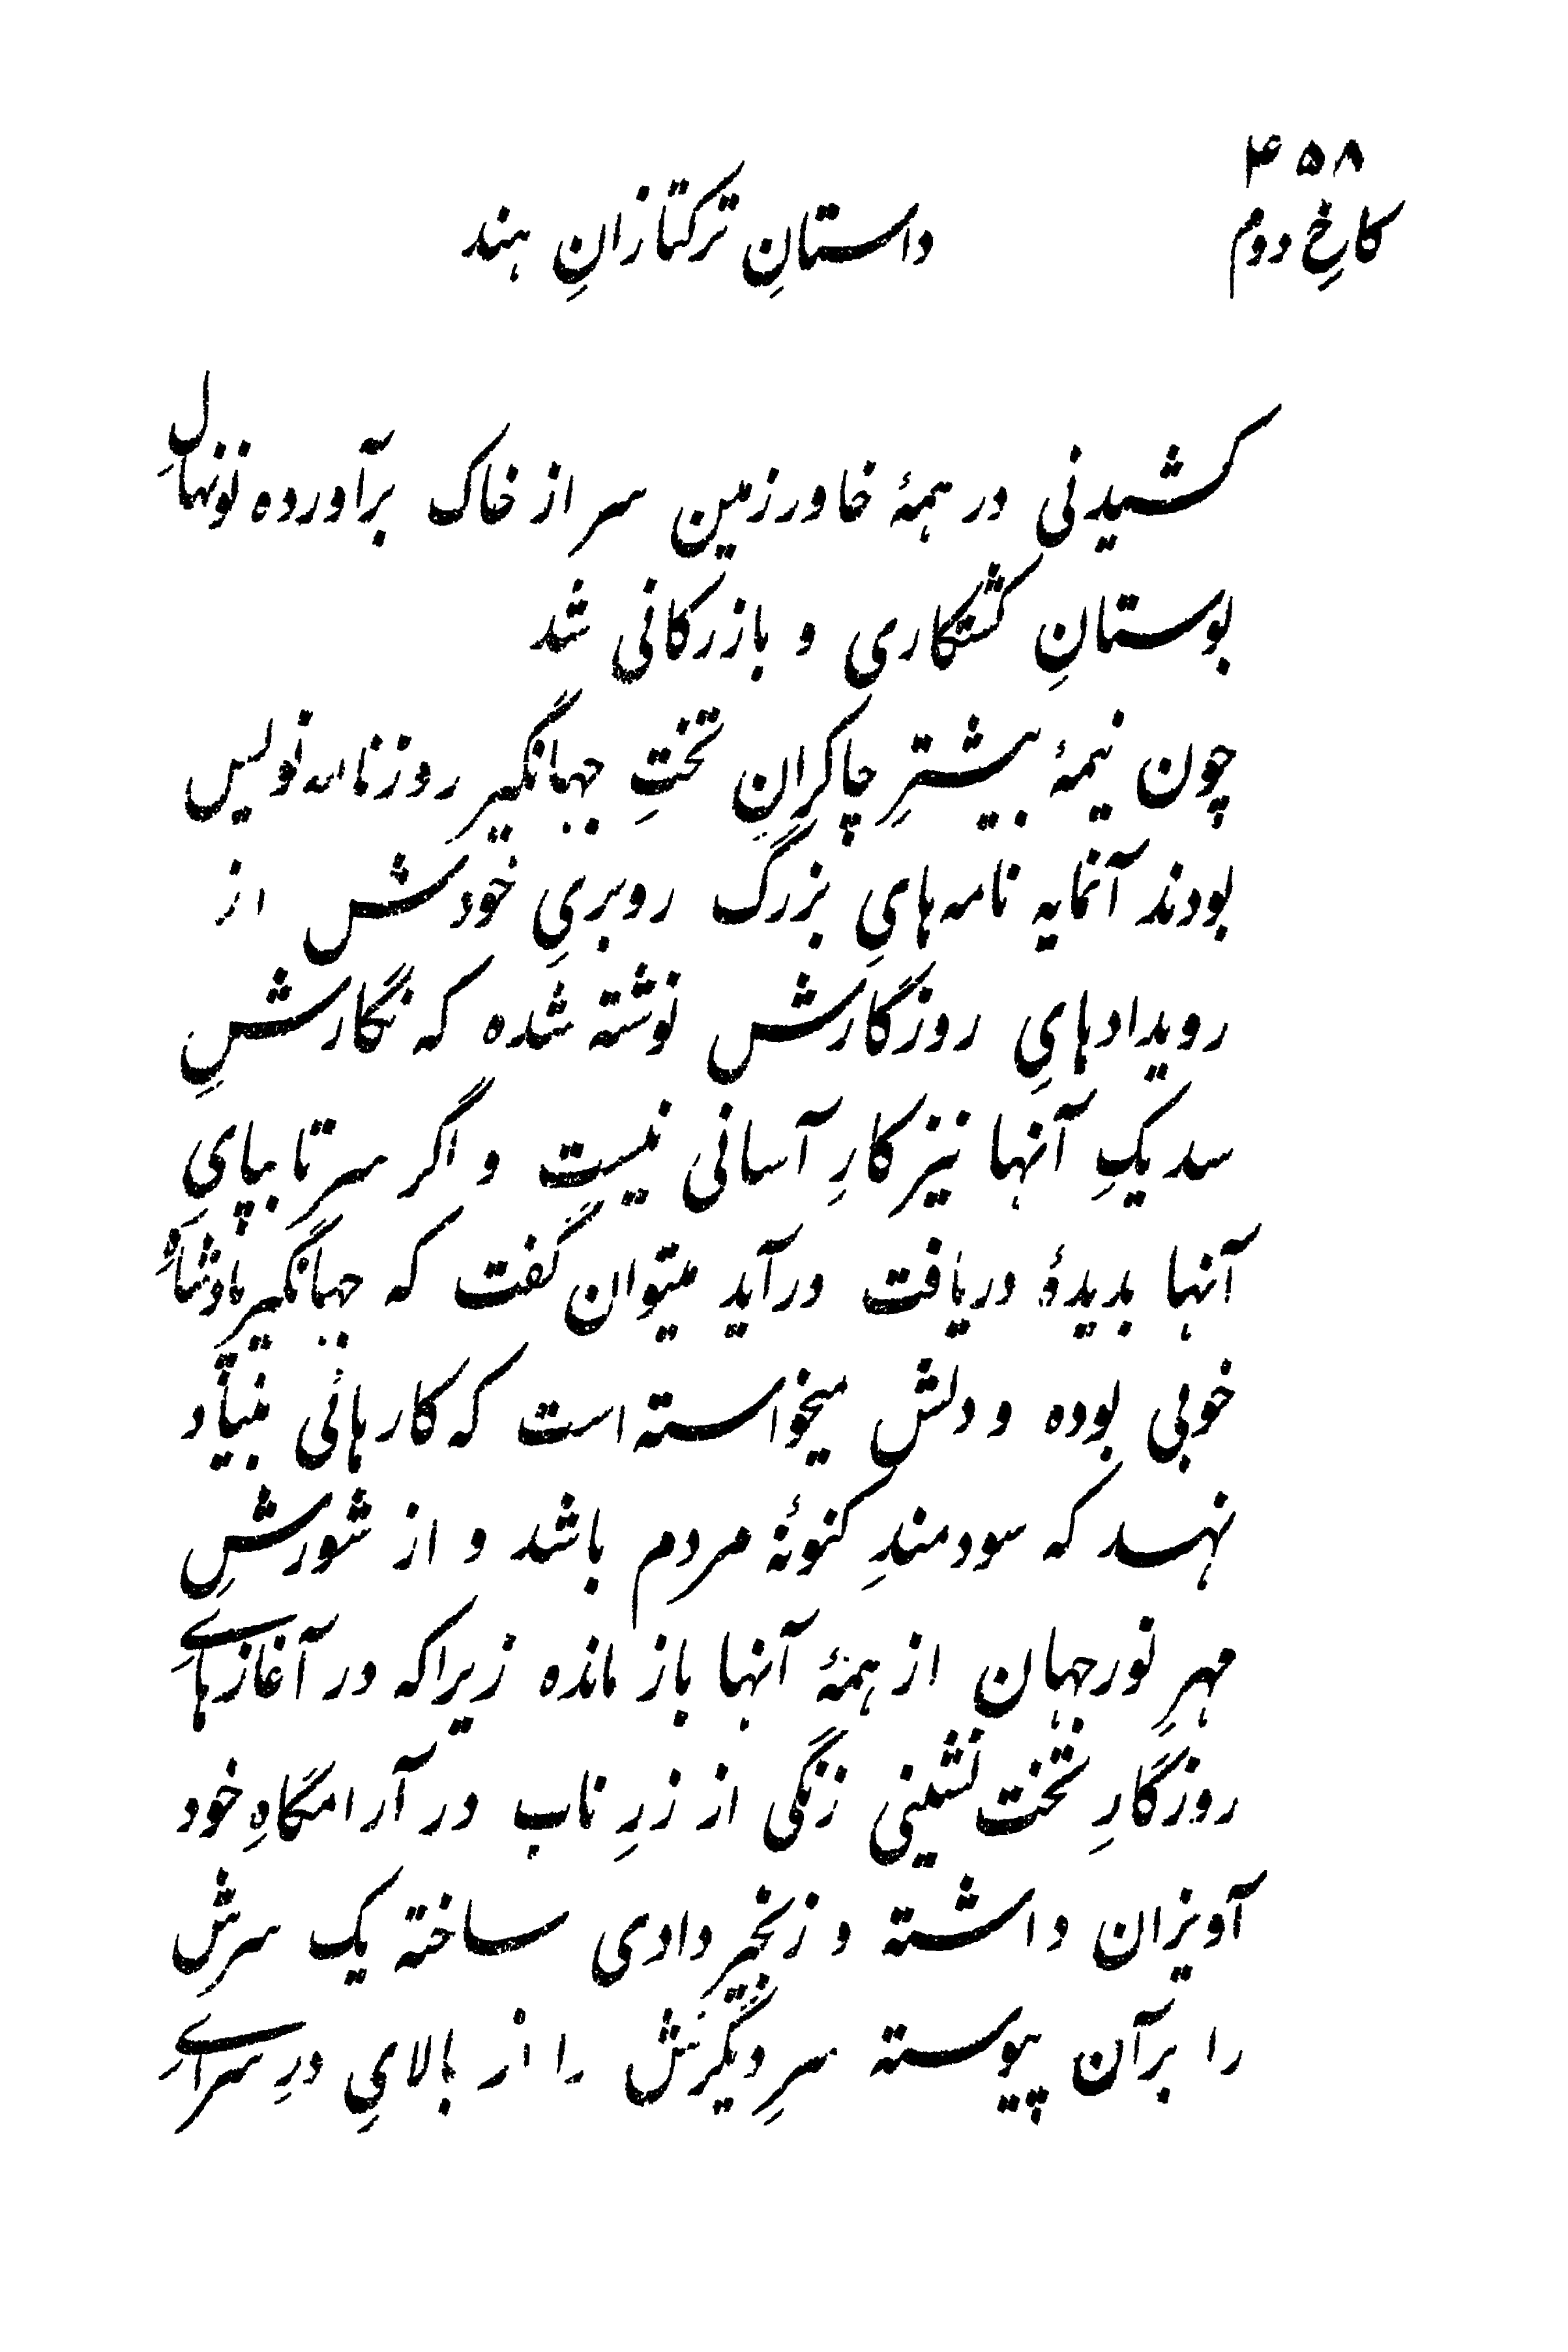 ۴۵۸
کاخِ دوم
داستانِ ترکتازانِ هند
کشیدنی در همهٔ خاورزمین سر از خاک برآورده نونهالِ
بوستانِ کشتکاری و بازرکانی شد
چون نیمهٔ بیشترِ چاکرانِ تختِ جهانگیر روزنامه نویس
بودند آنمایه نامه‌هایِ بزرگ روبریِ خودش از
رویدادهایِ روزگارش نوشته شده که نگارشِ
سد یکِ آنها نیز کارِ آسانی نیست و اگر سر تا بپایِ
آنها بدیدهٔ دریافت درآید میتوان گفت که جهانگیر پادشاهِ
خوبی بوده و دلش میخواسته است که کارهائی بنیاد
نهد که سودمندِ کنونهٔ مردم باشد و از شورشِ
مهرِ نورجهان از همهٔ آنها باز مانده زیراکه در آغازهایِ
روزگارِ تخت نشینی زنگی از زرِ ناب در آرامگاهِ خود
آویزان داشته و زنجیر دادی ساخته یک سرش
را برآن پیوسته سرِ دیگرش را از بالایِ درِ سرایِ